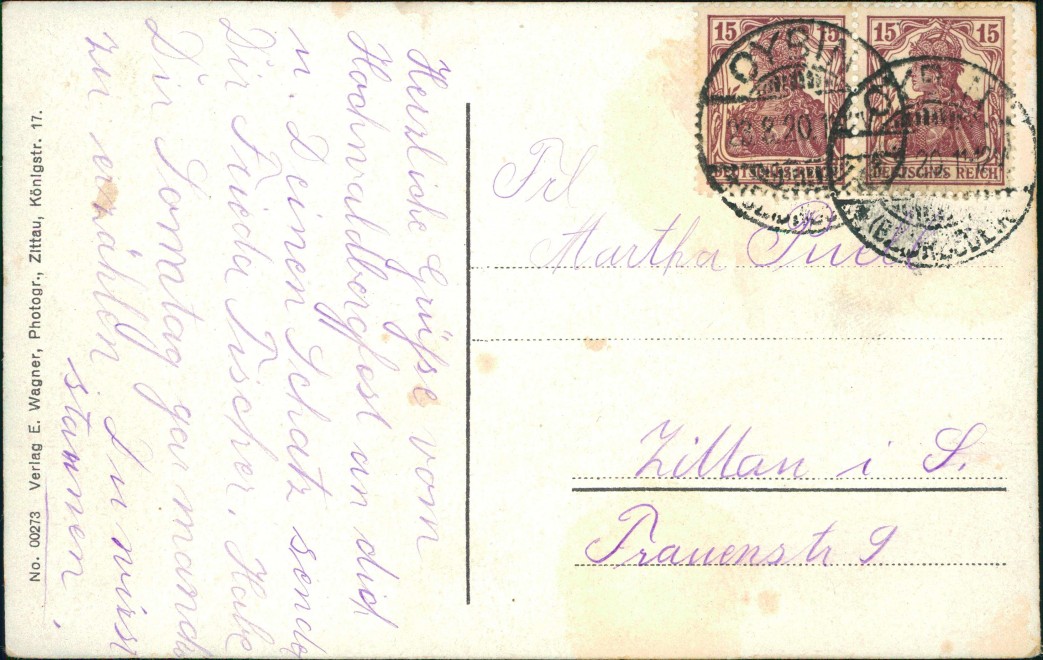 Herzlische Grüsse vom
Hochwaldborgfest an dich
u. Deinen Schatz sendet
Dir Frieda Fischer. Habe
Dir Sonntag gar manch
zu erzählen Du wirst
stannen.
15 15
15 15
DEUTSCHES REICH
DEUTSCHES REICH
OYBIN
20
Frl
Martha
Zittau i S.
Frauenstr 9
No. 00273 Verlag E. Wagner, Photogr., Zittau, Königstr. 17.